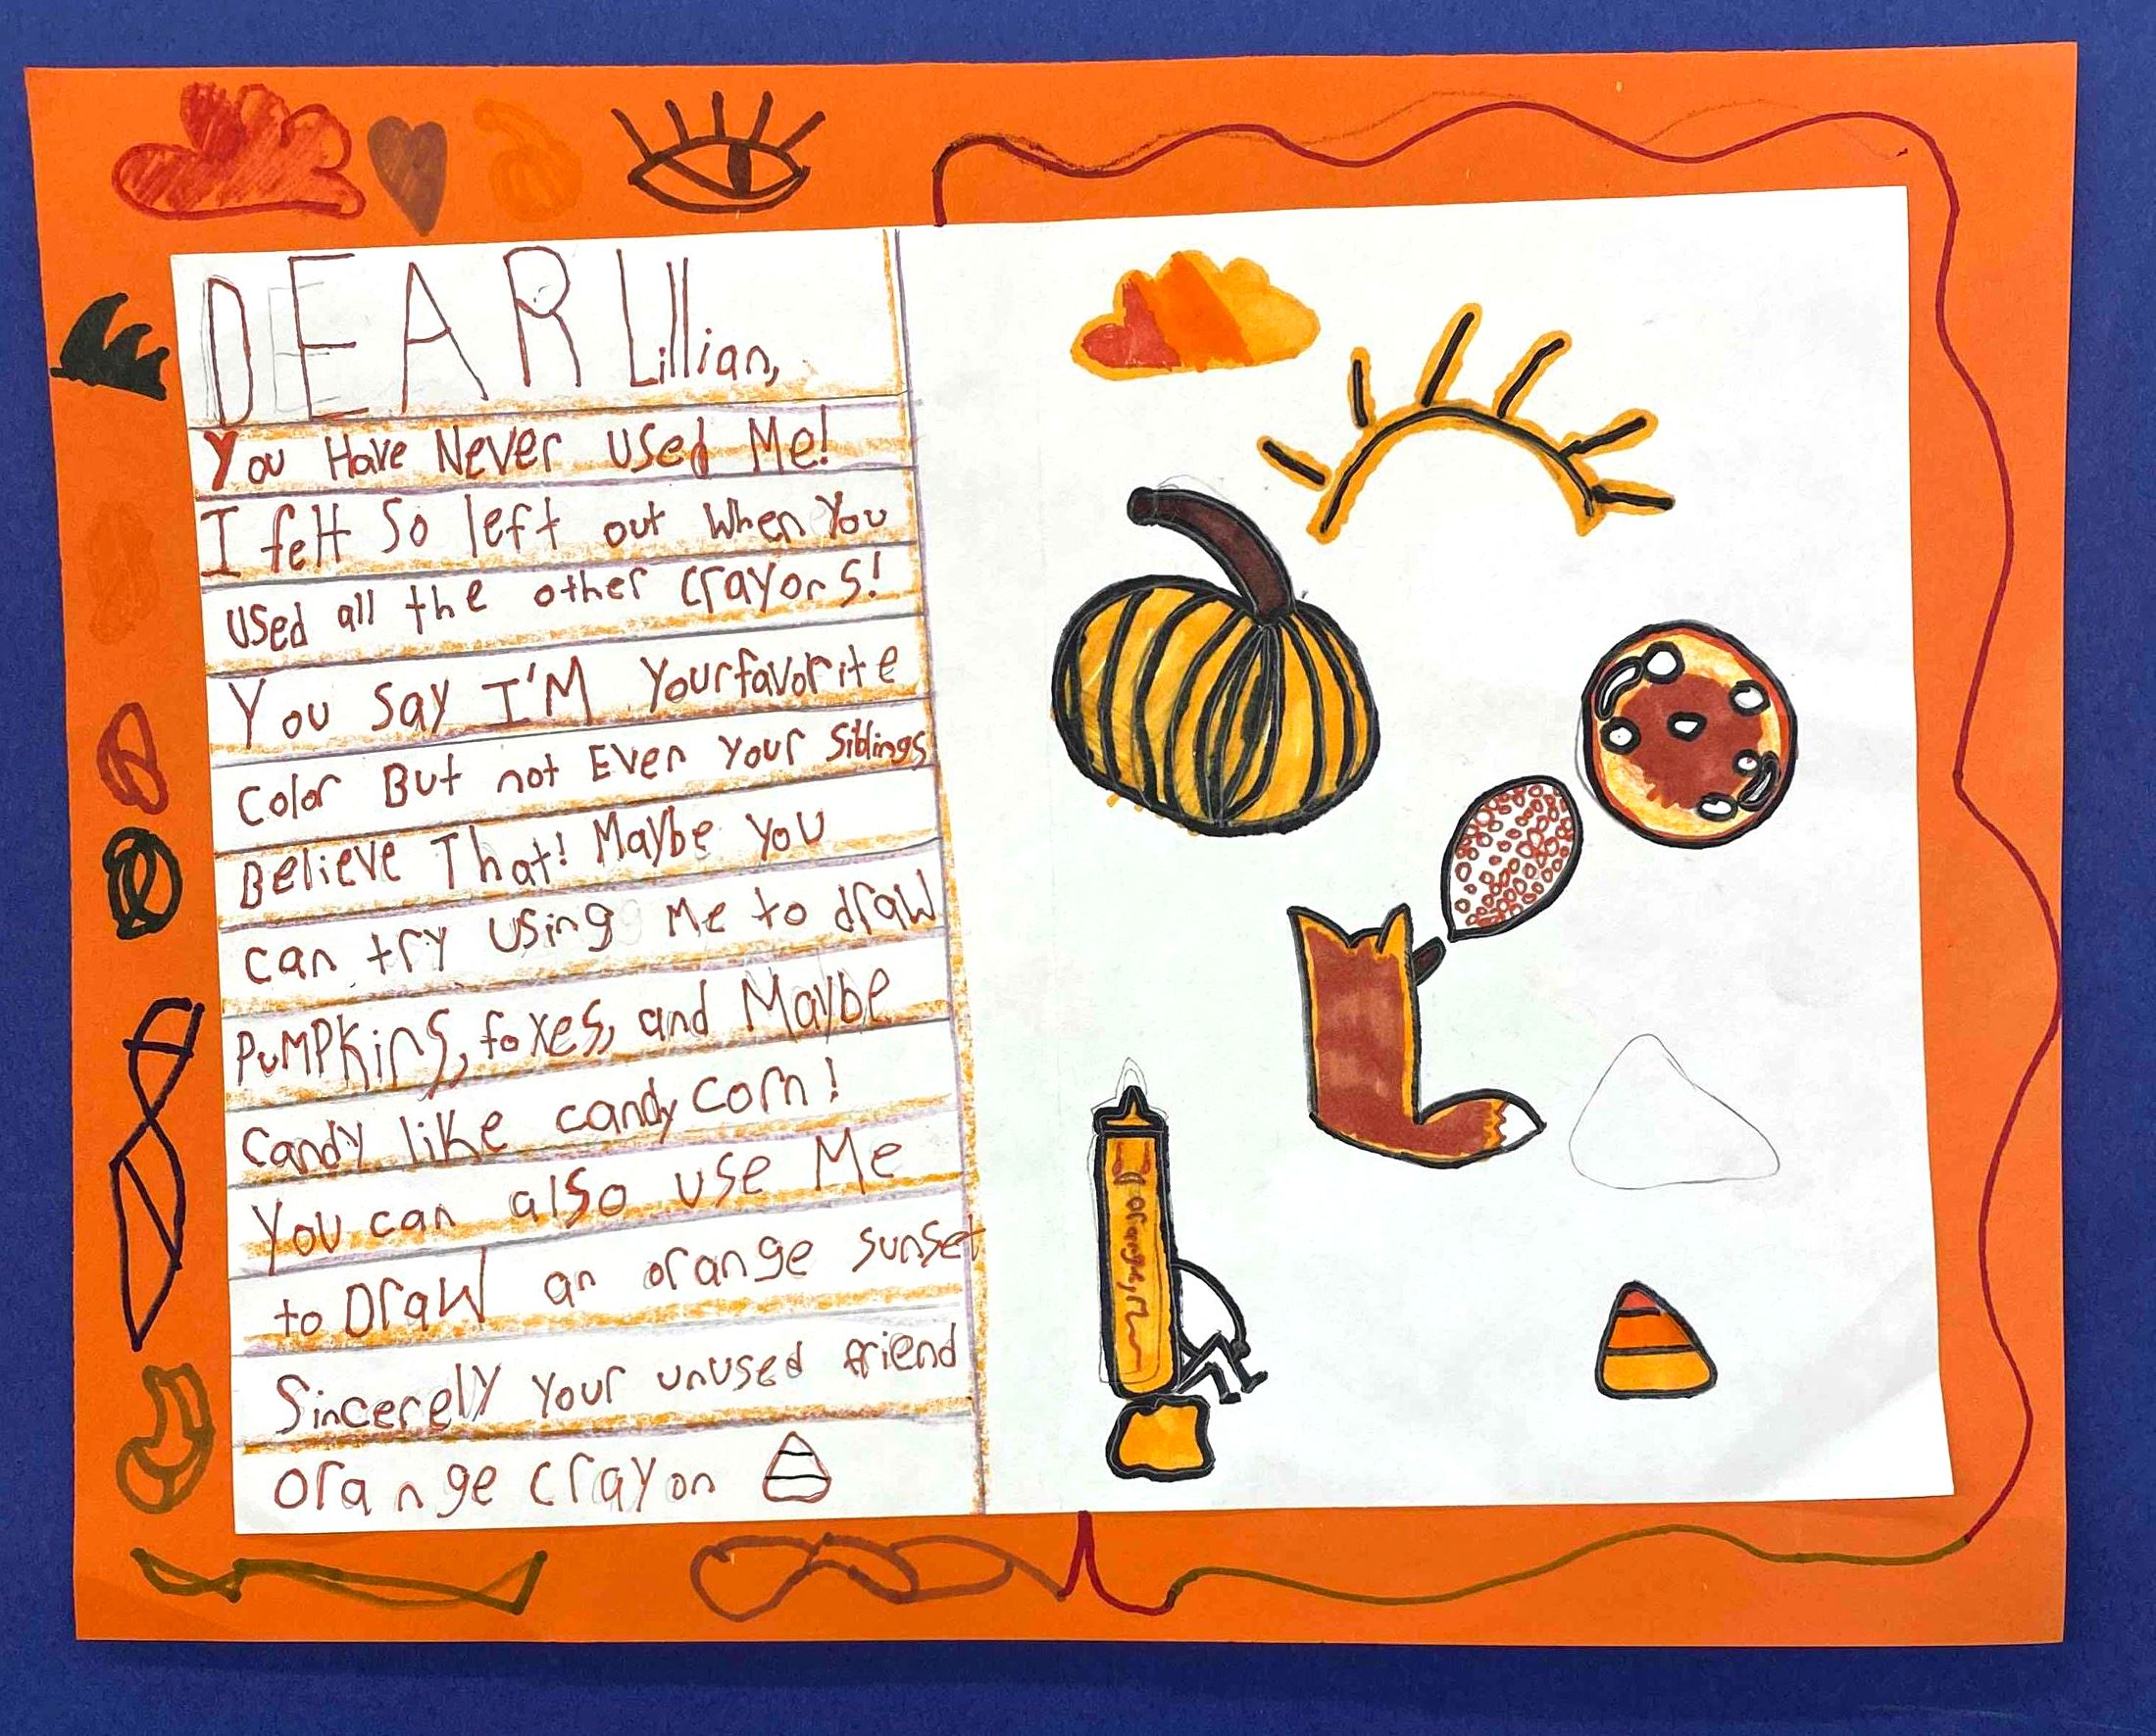 DEAR Lillian,
You Have Never Used Me!
I felt So left out When You
Used all the other crayons!
You say I'M Yourfavorite
color But not Even Your Siblings
Believe That! Maybe you
can try Using Me to draw
PuMPKins, foxes, and Maybe
Candy like candy corn!
You can also use Me
to DraW an orange sunset
Sincerely Your unused friend
orange crayon
orange